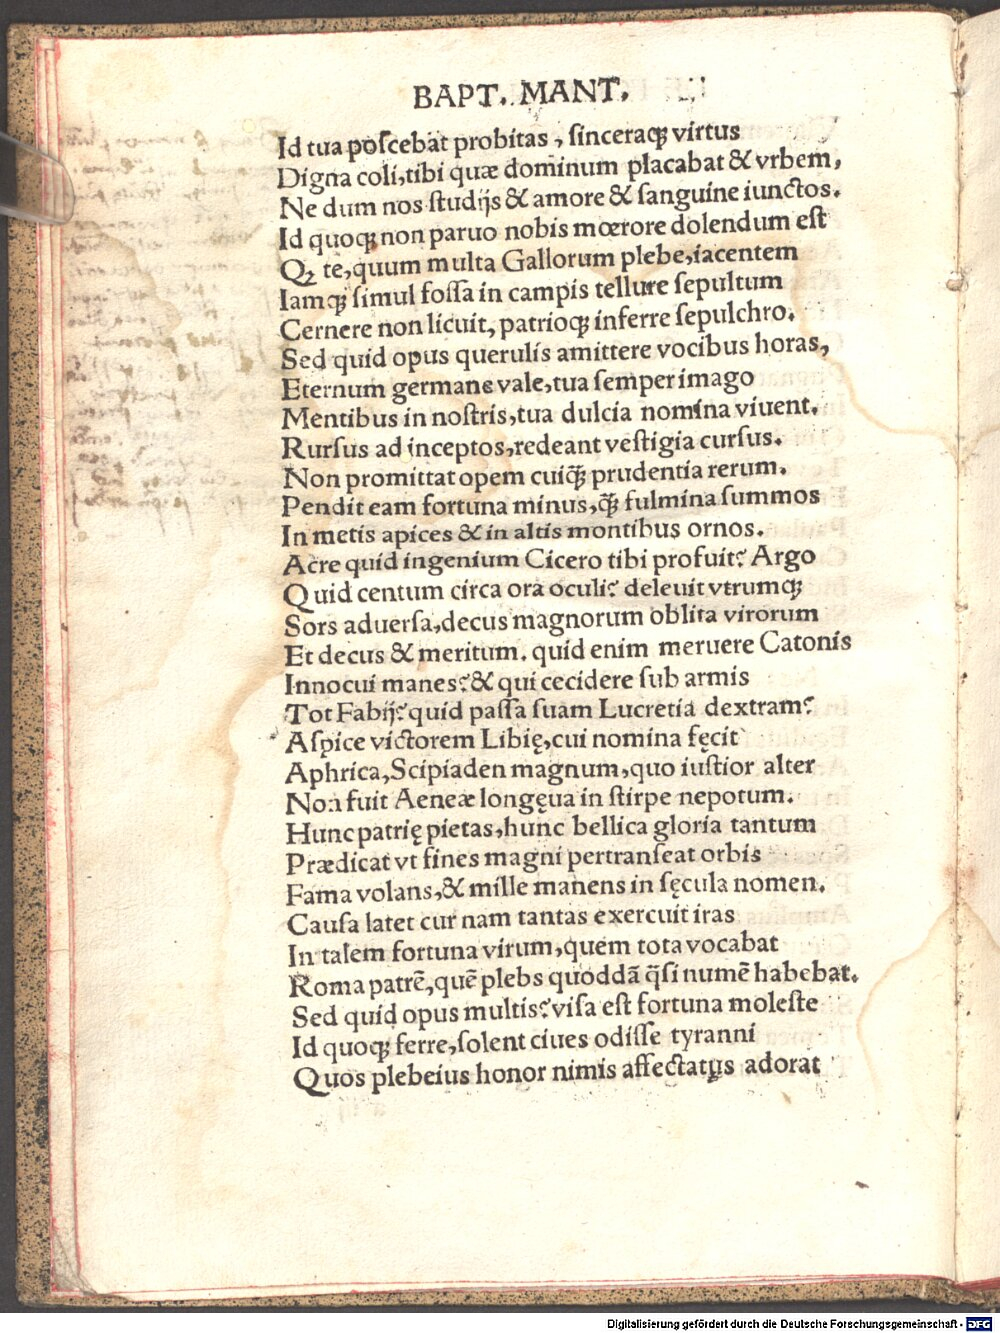 BAPT. MANT.
Id tua poſcebat probitas, ſinceraqꝫ virtus
Digna coli,tibi quæ dominum placabat & vrbem,
Ne dum nos ſtudijs & amore & ſanguine iunctos.
Id quoqꝫ non paruo nobis mœrore dolendum eſt
Qꝫ te,quum multa Gallorum plebe,iacentem
Iamqꝫ ſimul foſſa in campis tellure ſepultum
Cernere non licuit, patrioqꝫ inferre ſepulchro.
Sed quid opus querulis amittere vocibus horas,
Eternum germane vale,tua ſemper imago
Mentibus in noſtris,tua dulcia nomina viuent.
Rurſus ad inceptos,redeant veſtigia curſus.
Non promittat opem cuiqꝫ̃ prudentia rerum.
Pendit eam fortuna minus,qꝫ̃ fulmina ſummos
In metis apices & in altis montibus ornos.
Acre quid ingenium Cicero tibi profuit? Argo
Quid centum circa ora oculi? deleuit vtrumqꝫ
Sors aduerſa,decus magnorum oblita virorum
Et decus & meritum. quid enim meruere Catonis
Innocui manes?& qui cecidere ſub armis
Tot Fabij?quid paſſa ſuam Lucretia dextram?
Aſpice victorem Libię,cui nomina fęcit
Aphrica,Scipiaden magnum,quo iuſtior alter
Non fuit Aeneæ longęua in ſtirpe nepotum.
Hunc patrię pietas,hunc bellica gloria tantum
Prædicat vt fines magni pertranſeat orbis
Fama volans,& mille manens in ſęcula nomen.
Cauſa latet cur nam tantas exercuit iras
In talem fortuna virum,quem tota vocabat
Roma patrẽ,quẽ plebs quoddã q̃ſi numẽ habebat.
Sed quid opus multis?viſa eſt fortuna moleſte
Id quoqꝫ ferre,ſolent ciues odiſſe tyranni
Quos plebeius honor nimis affectatꝰus adorat
Digitalisierung gefördert durch die Deutsche Forschungsgemeinschaft - DFG